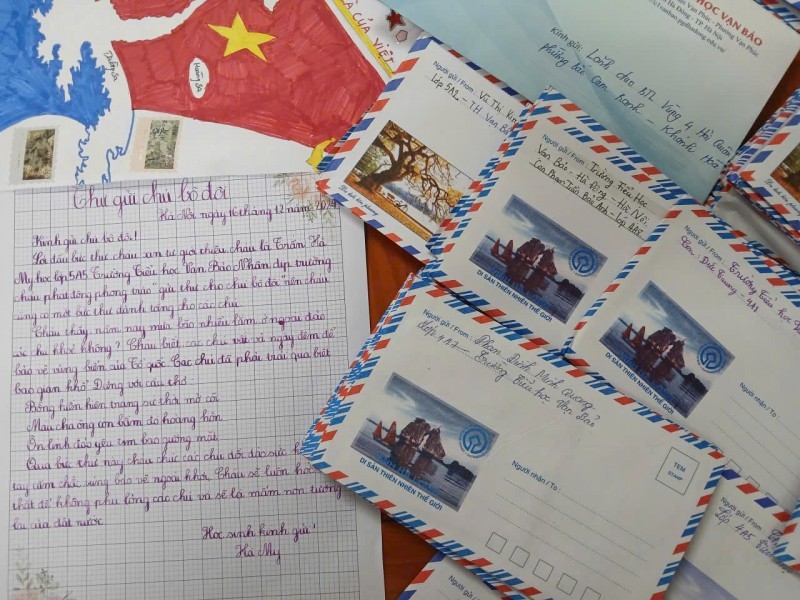 LÀ CỦA VIỆT
Hoàng Sa
Thư gửi chú bộ đội
Hà Nội ngày 16 tháng 12 năm 2024
Kính gửi chú bộ đội!
Lá đầu bức thư cháu xin tự giới thiệu cháu là Trần Hà
My học lớp 5A5 Trường Tiểu học Vạn Bảo. Nhân dịp trường
cháu phát động phong trào "gửi thư cho chú bộ đội" nên cháu
cũng có một bức thư dành tặng cho các chú.
Cháu thấy năm nay mưa bão nhiều lắm ở ngoài đảo
các chú khoẻ không? Cháu biết các chú vất vả ngày đêm để
bảo vệ vùng biển của Tổ quốc. Các chú đã phải trải qua biết
bao gian khổ. Đúng với câu thơ:
Bổng hiên trang sử thời mở cõi
Máu cha ông ươm bầm đỏ hoàng hôn
Ôi linh đảo yêu ơm bao gương mặt
Qua bức thư này cháu chúc các chú dồi dào sức
tay cầm chắc súng bảo vệ ngoài khơi. Cháu sẽ luôn
thật để không phụ lòng các chú và sẽ là mầm non tương
lai của đất nước
Học sinh kính gửi!
Hà My
HỌC VẠN BẢO
Vạn Phúc - Phường Vạn Phúc
Hà Đông - TP Hà Nội
Kính gửi:
Vùng 4 Hải Quân
phường Cam Ranh - Khánh Hòa
Người gửi / From: Vũ Thị Kim
Lớp 5A2 - T.H Vạn Bảo
Người gửi / From: Trường Tiểu Học
Vạn Bảo - Hà Đông - Hà Nội.
lớp 4A5
DI SẢN THIÊN NHIÊN THẾ GIỚI
Người gửi / From: Trường Tiểu học
4A1
DI SẢN THIÊN NHIÊN THẾ GIỚI
Người nhận / To:
Người gửi / From: Phan Đình Minh Quang
Lớp 4A7 Trường Tiểu học Vạn Bảo
DI SẢN THIÊN NHIÊN THẾ GIỚI
Người nhận / To:
TEM
STAMP
Người gửi / From:
Lớp 4A5
Người gửi / From: